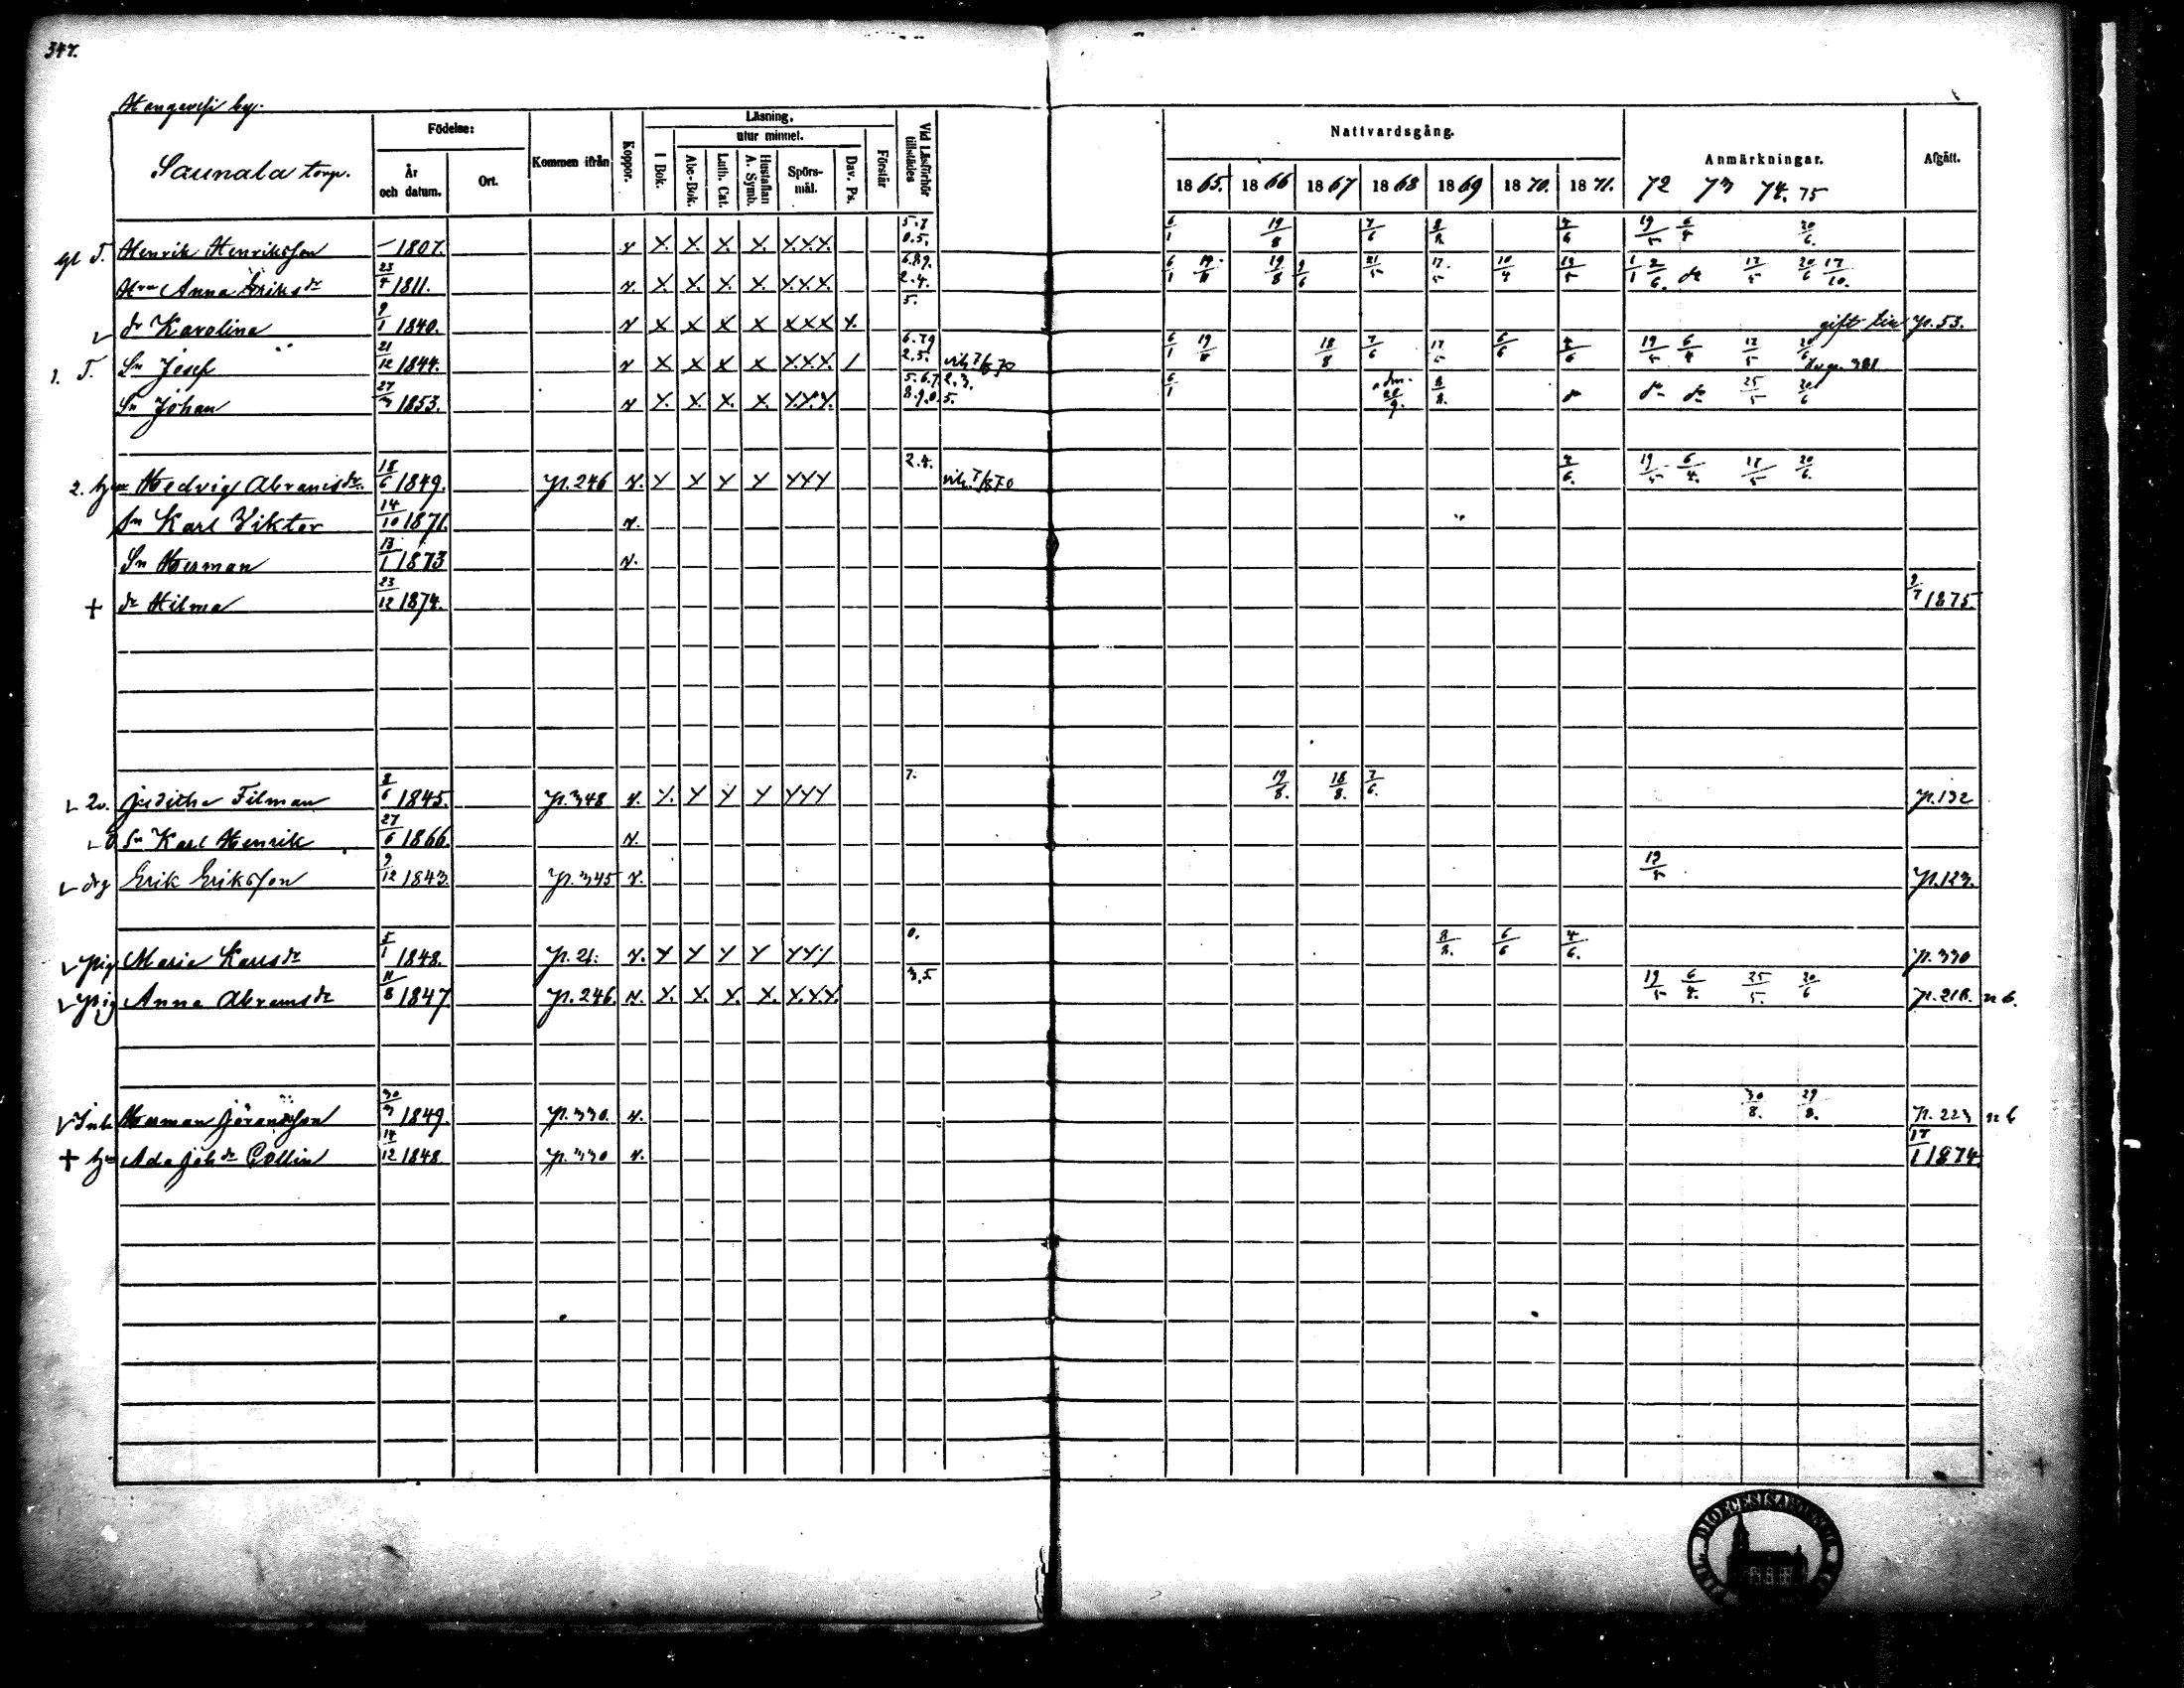 347.
Hangaresi by.
Saunala torp.
Födelse:
År och datum.
Ort.
Kommen ifrån
Koppor.
Läsning.
I Bok.
utur minnet.
Abc-Bok.
Luth. Cat.
Hustaflan A. Symb.
Spörs-mål.
Dav. Ps.
Förstår
Vid Läsförhör tillstädes
Nattvardsgång.
1865. 1866 1867 1868 1869 1870. 1871.
Anmärkningar.
72 73 74. 75
Afgått.
gl T. Henrik Henriksson — 1807. v X. X. X. X. X.X.X. 5.7 0.5. 6/1 19/8 7/6 8/8 4/6 19/5 6/4 20/6.
Hru Anna Eriksdr 23/4 1811. v. X. X. X. X. X.X.X. 6.8.9. 2.4. 6/1 19/11 19/8 9/6 21/5 17/5 10/4 12/5 1/1 2/6. dr 12/5 20/6 17/10.
v dr Karolina 9/1 1840. v X X X X XXX X. 5. gift Lin p. 53.
1. T. Sn Josef 21/12 1844. v X X X X X.X.X. / 6.7.9 2.5. vih. 7/8 70 6/1 19/11 18/8 7/6 17/5 6/6 4/6 19/5 6/4 12/5 20/6
Sn Johan 27/3 1853. v X. X. X. X. X.X.X. 5.6.7. 2.3. 8.9.0. 5. 6/1 20/9. 8/8. dr dr dr 25/5 20/6
2. hu Hedvig Abramsdr. 18/6 1849. p. 246 v. Y Y Y Y YYY 2.4. vih. 7/8 70 4/6. 19/5 6/4. 12/5 20/6.
sn Karl Viktor 14/10 1871. v.
Sn Herman 13/1 1873 v.
+ dr Hilma 23/12 1874. 9/7 1875.
v 20. Juditha Filman 8/6 1845. p. 348 v. Y. Y Y Y YYY 7. 19/8. 18/8. 7/6. p. 132
Sn Karl Henrik 27/6 1866. v.
v drg Erik Eriksson 9/12 1843. p. 345 v. 19/5 p. 123.
v pig Maria Karlsdr 5/1 1848. p. 21. v. Y Y Y Y YYY 0. 8/8. 6/6 4/6. p. 330
v pig Anna Abramsdr 11/8 1847 p. 246. v. X. X. X. X. X.X.X. 3,5 19/5 6/4. 25/5. 20/6 p. 218. n b.
v Inh Herman Göransson 30/3 1849. p. 330. v. 30/8. 29/8. p. 223 n b
+ hu Ada Johdr Collin 14/12 1848. p. 330 v. 17/1 1874.